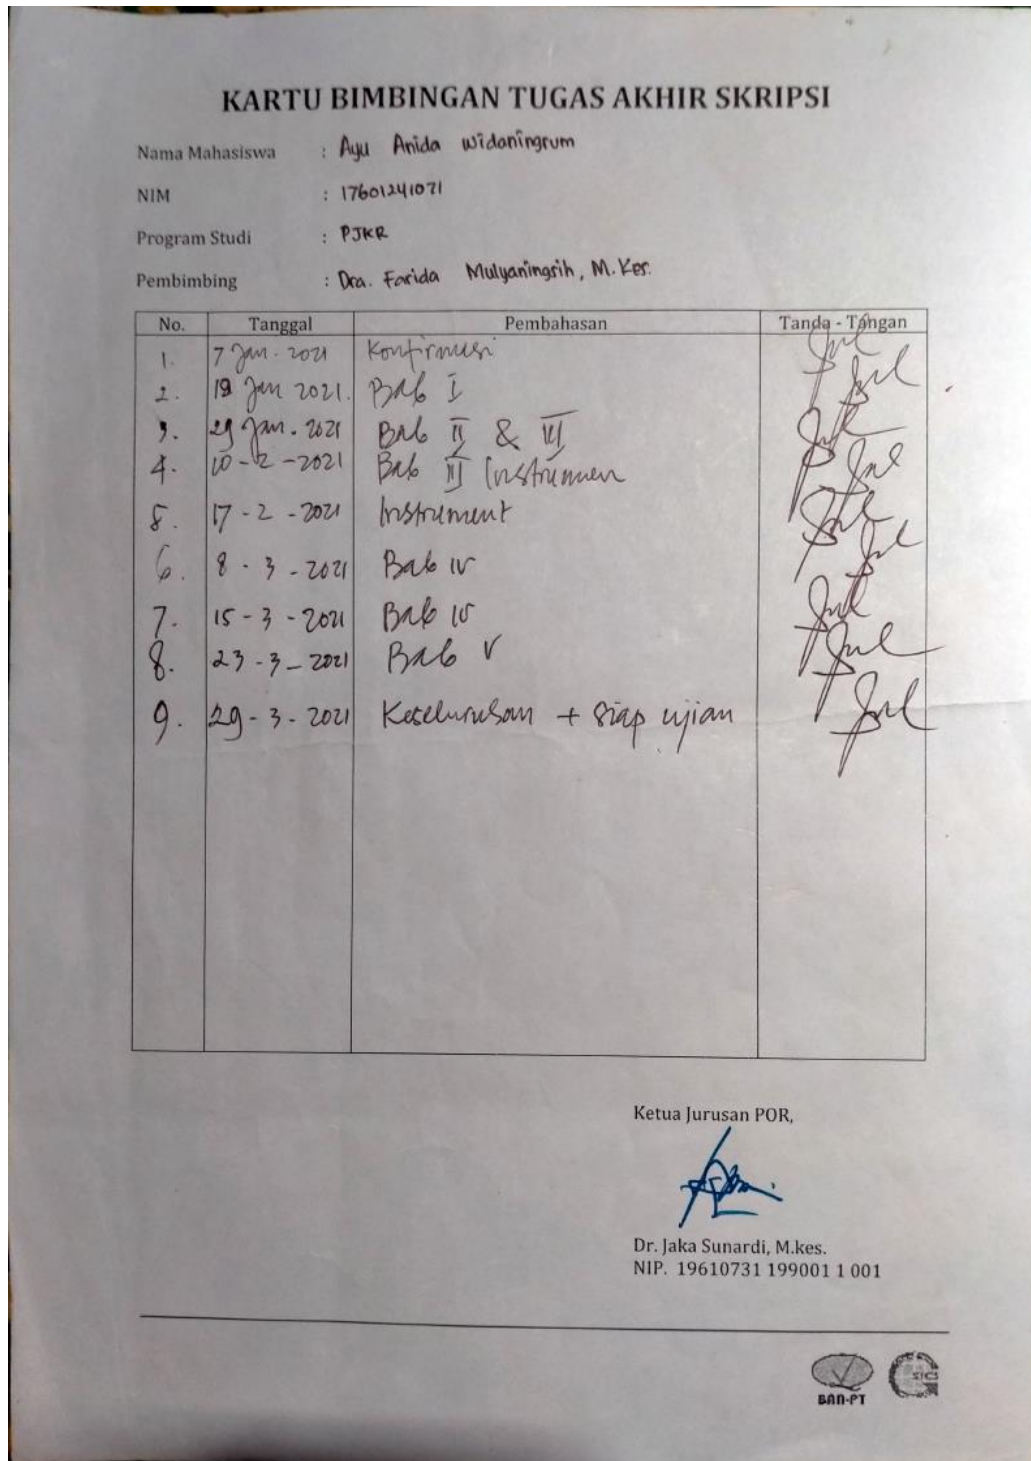 KARTU BIMBINGAN TUGAS AKHIR SKRIPSI
Nama Mahasiswa : Ayu Anida Widaningrum
NIM : 17601241071
Program Studi : PJKR
Pembimbing : Dra. Farida Mulyaningsih, M.Kes.
No. Tanggal Pembahasan Tanda - Tangan
1. 7 Jan. 2021 Konfirmasi
2. 19 Jan 2021. Bab I
3. 29 Jan. 2021 Bab II & III
4. 10-2-2021 Bab III Instrumen
5. 17-2-2021 Instrument
6. 8-3-2021 Bab IV
7. 15-3-2021 Bab IV
8. 23-3-2021 Bab V
9. 29-3-2021 Keseluruhan + siap ujian
Ketua Jurusan POR,
Dr. Jaka Sunardi, M.kes.
NIP. 19610731 199001 1 001
BAN-PT